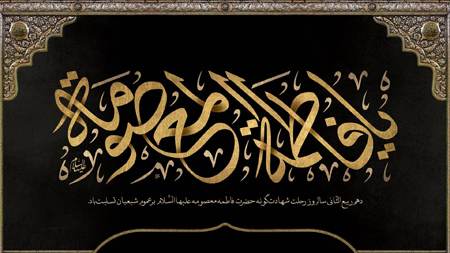 یا فاطمة المعصومة
علیها السلام
دهم ربیع الثانی سالروز رحلت شهادت‌گونه حضرت فاطمه معصومه علیها السلام بر عموم شیعیان تسلیت باد.